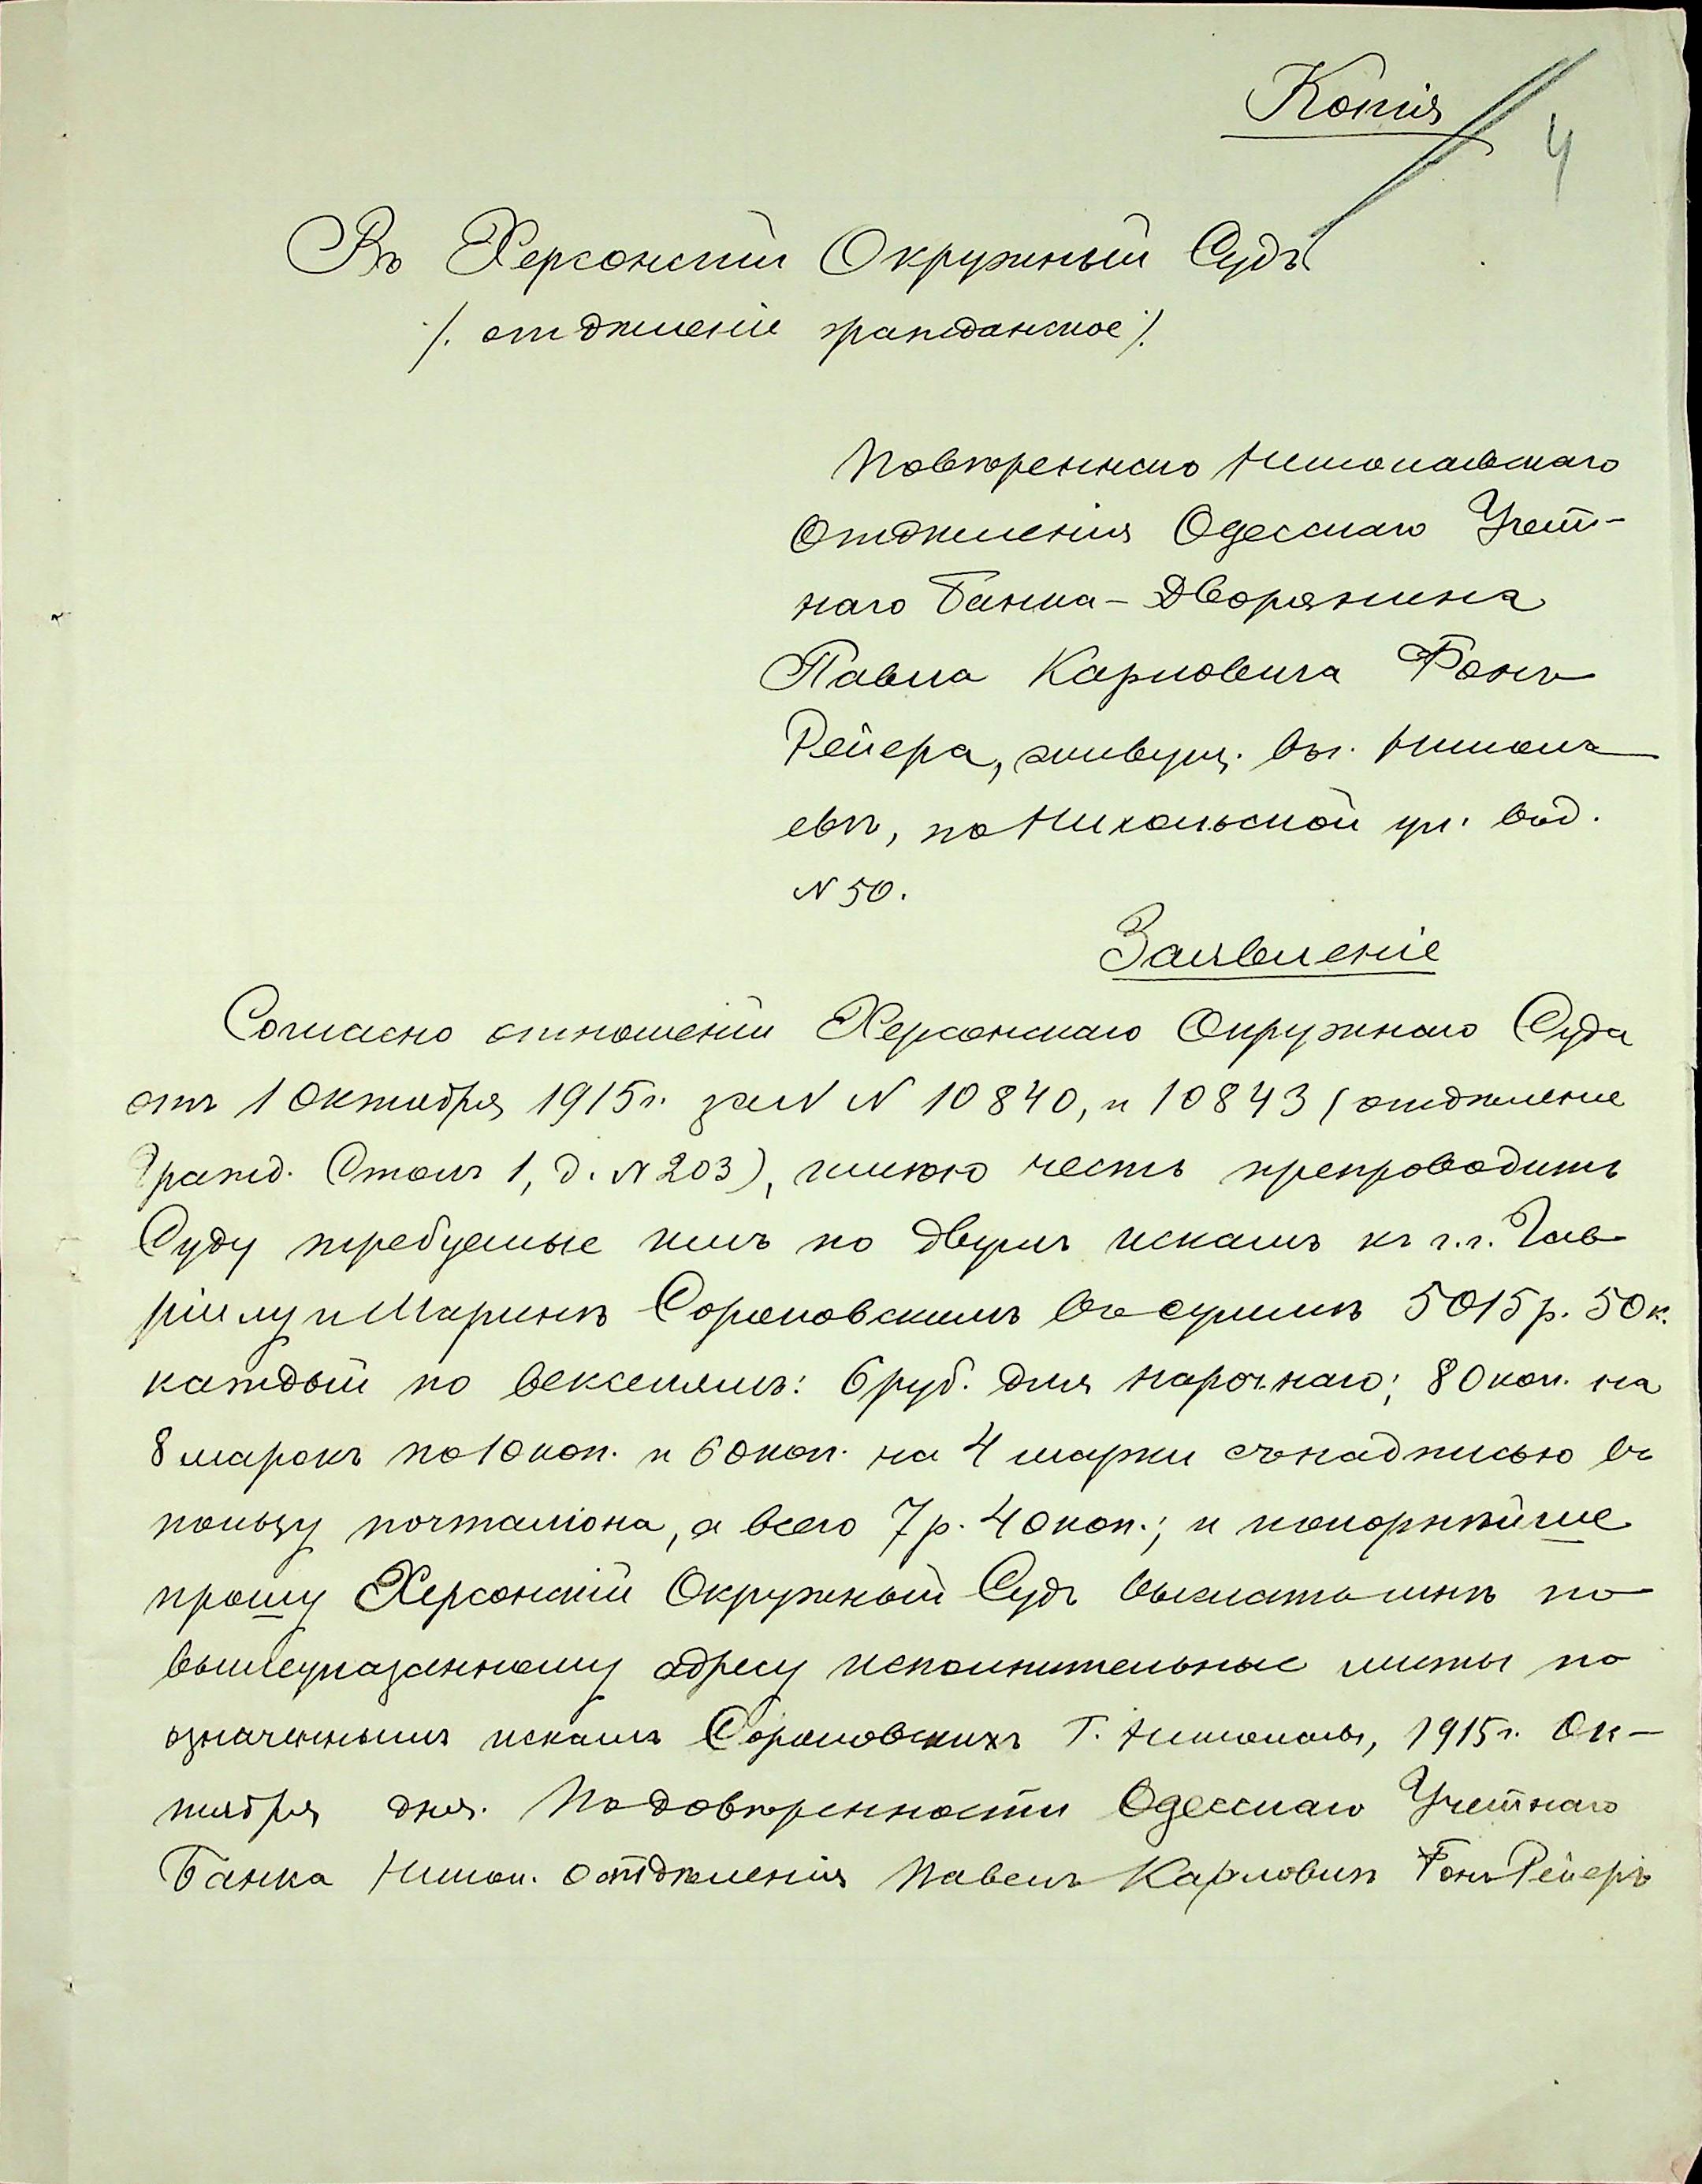 Копія
4
Въ Херсонскій Окружный Судъ
/. отдѣленіе гражданское ./.
Повѣреннаго Николаевскаго
Отдѣленія Одесскаго Учет-
наго Банка - Дворянина
Павла Карловича Фонъ
Рейера, живущ. въ г. Никола
евѣ, по Никольской ул. въ д.
N 50.
Заявленіе
Согласно отношеній Херсонскаго Окружнаго Суда
отъ 1 Октября 1915 г. за N N 10840, и 10843 (отдѣление
Гражд. Столъ 1, д. N 203), имѣю честь препроводить
Суду требуемые имъ по двумъ искамъ къ г.г. Гав
ріилу и Маринѣ Сораковскимъ въ суммѣ 5015 р. 50 к.
каждый по векселямъ: 6 руб. для нарочнаго; 80 коп. на
8 марокъ по 10 коп. и 60 коп. на 4 марки съ надписью въ
пользу почталіона, а всего 7 р. 40 коп.; и покорнѣйше
прошу Херсонскій Окружный Судъ выслать мнѣ по
вышеуказанному адресу исполнительные листы по
означеннымъ искамъ Сораковскихъ Г. Николаевъ, 1915 г. Ок-
тября дня. По довѣренности Одесскаго Учетнаго
Банка Никол. Отдѣленія Павелъ Карловичъ Фонъ Рейеръ